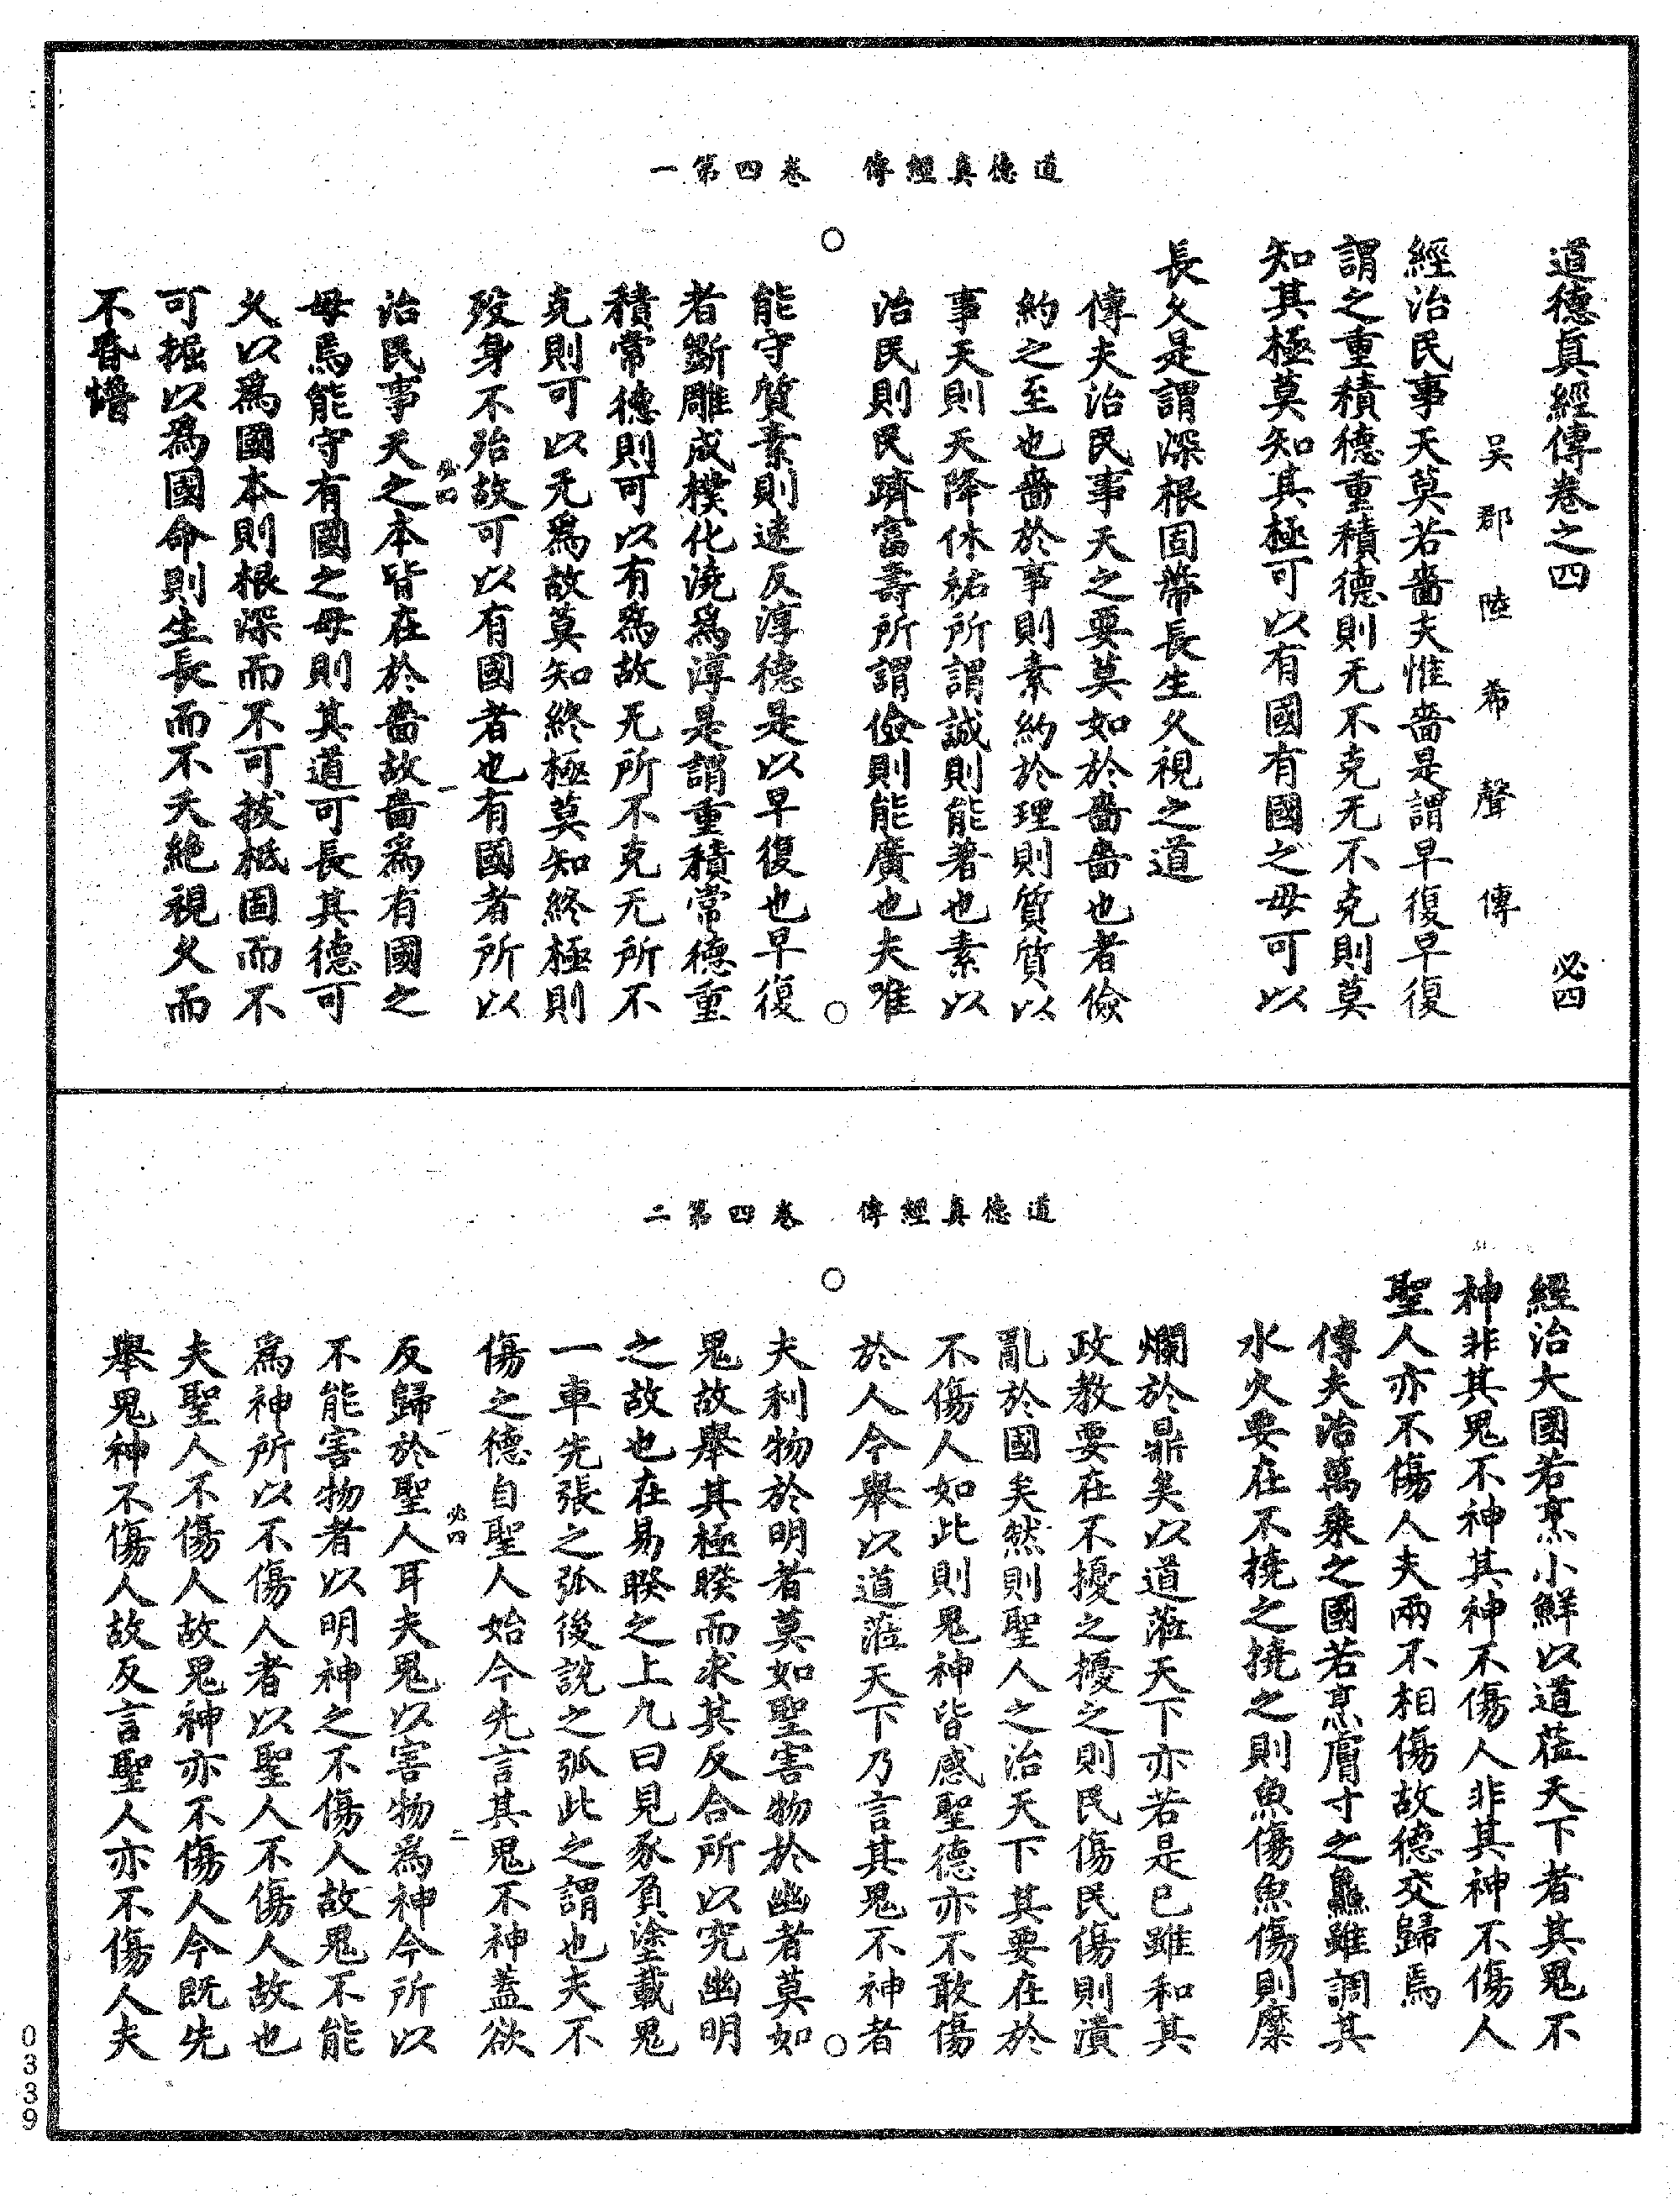 道德真經傳　卷四第一
道德真經傳卷之四　必四
吴郡陸希聲傳
經治民事天莫若嗇夫惟嗇是謂早復早復
謂之重積德重積德則无不克无不克則莫
知其極莫知其極可以有國有國之母可以
長久是謂深根固蔕長生久視之道
傳夫治民事天之要莫如於嗇嗇也者儉
約之至也嗇於事則素約於理則質質以
事天則天降休祐所謂誠則能著也素以
治民則民躋富壽所謂儉則能廣也夫唯
能守質素則速反淳德是以早復也早復
者斲雕成樸化澆爲淳是謂重積常德重
積常德則可以有爲故无所不克无所不
克則可以无爲故莫知終極莫知終極則
歿身不殆故可以有國者也有國者所以
必四　一
治民事天之本皆在於嗇故嗇爲有國之
母焉能守有國之母則其道可長其德可
久以爲國本則根深而不可拔柢固而不
可掘以爲國命則生長而不夭絶視久而
不昏懵
道德真經傳　卷四第二
經治大國若烹小鮮以道莅天下者其鬼不
神非其鬼不神其神不傷人非其神不傷人
聖人亦不傷人夫兩不相傷故德交歸焉
傳夫治萬乘之國若烹膚寸之鱻雖調其
水火要在不撓之撓之則魚傷魚傷則糜
爛於鼎矣以道蒞天下亦若是已雖和其
政教要在不擾之擾之則民傷民傷則潰
亂於國矣然則聖人之治天下其要在於
不傷人如此則鬼神皆感聖德亦不敢傷
於人今舉以道蒞天下乃言其鬼不神者
夫利物於明者莫如聖害物於幽者莫如
鬼故舉其極睽而求其反合所以究幽明
之故也在易睽之上九曰見豕負塗載鬼
一車先張之弧後説之弧此之謂也夫不
傷之德自聖人始今先言其鬼不神蓋欲
必四　二
反歸於聖人耳夫鬼以害物爲神今所以
不能害物者以明神之不傷人故鬼不能
爲神所以不傷人者以聖人不傷人故也
夫聖人不傷人故鬼神亦不傷人今既先
舉鬼神不傷人故反言聖人亦不傷人夫
0339